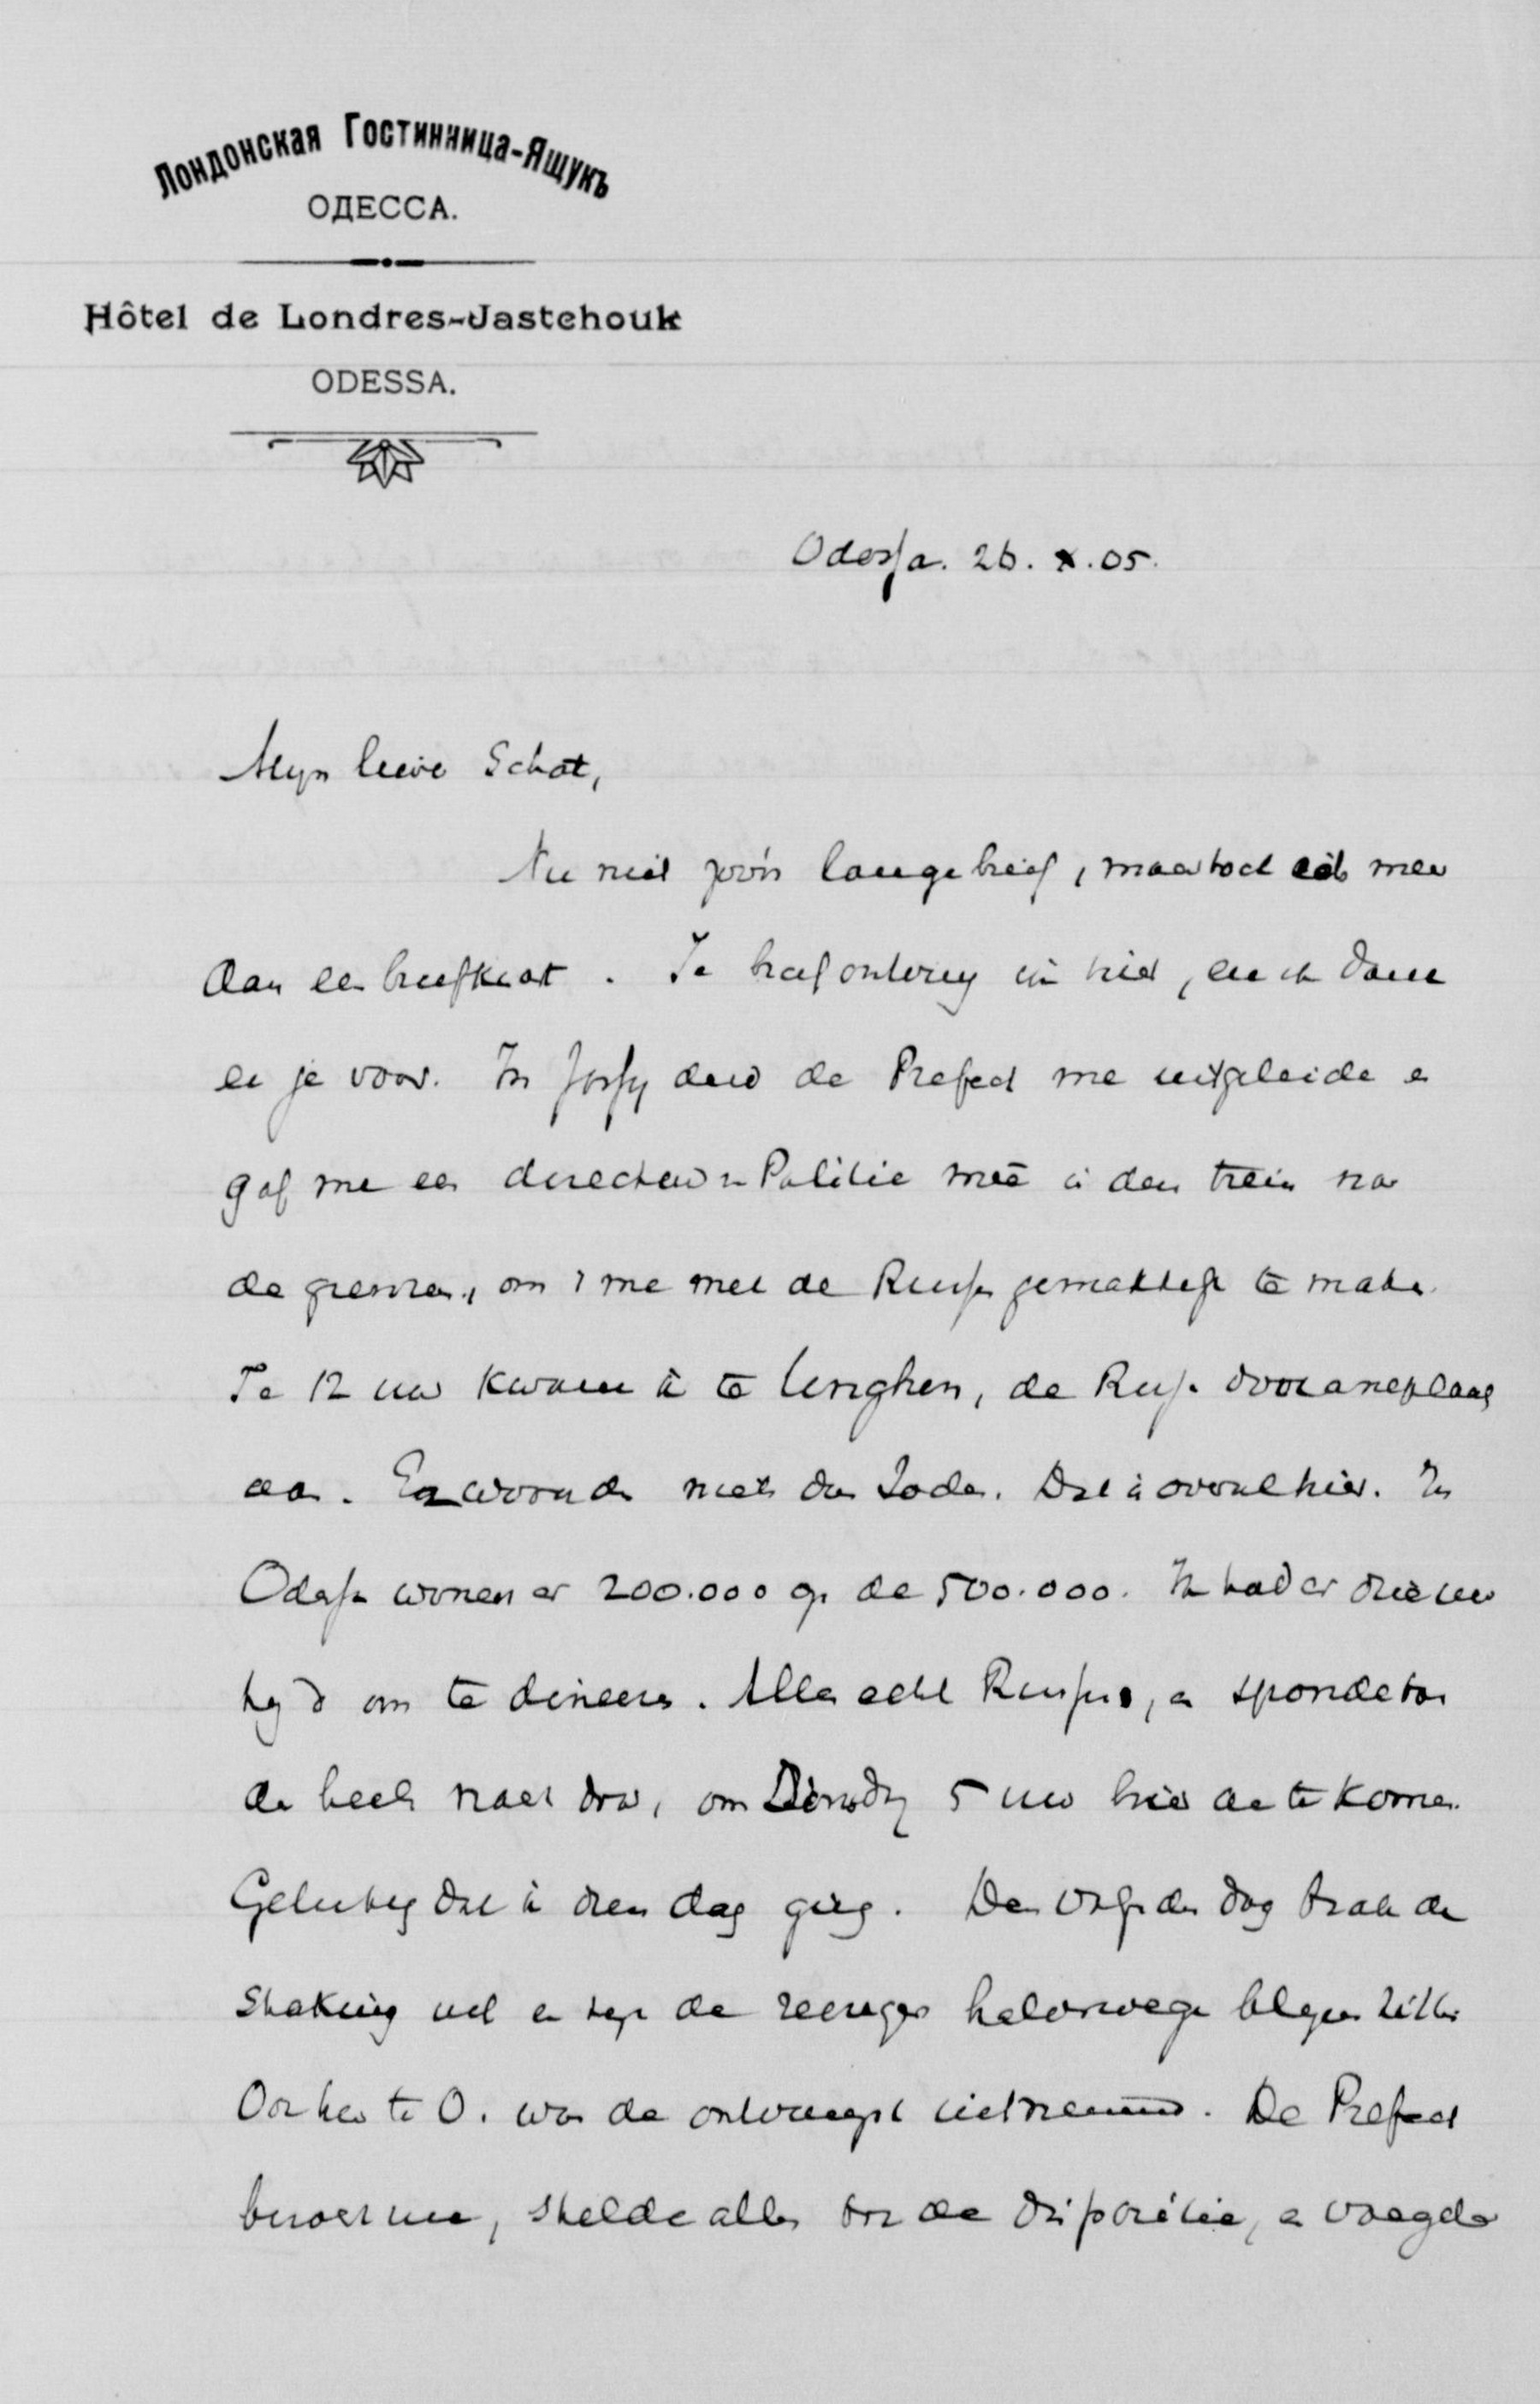 Лондонская Гостинница-Ящукъ
ОДЕССА.
Hôtel de Londres-Jastchouk
ODESSA.
Odessa. 26. X. 05.
Mijn lieve Schat,
Nu niet zoo'n lange brief, maar toch iets meer
dan een briefkaart. Je brief ontving ik hier, en ik dank
er je voor. In Jassy deed de Prefect me uitgeleide en
gaf me een directeur Politie meê in den trein naar
de grenzen, om 't me met de Russen gemakkelijk te maken.
Te 12 uur kwam ik te Unghen, de Russ. douaneplaats
aan. Er woonden niets dan Joden. Dat is overal hier. In
Odessa wonen er 200.000 op de 500.000. Ik had er drie uur
tijd om te dineeren. Alles echt Russisch, en spoorde toen
de heele nacht door, om Dinsdag 5 uur hier aan te komen.
Gelukkig dat ik dien dag ging. Den volgenden dag brak de
staking uit en zijn de reizigers halverwege blijven zitten
Ook hier te O. was de ontvangst uitnemend. De Prefect
bezocht me, stelde alles ter de dispositie, en vraagde